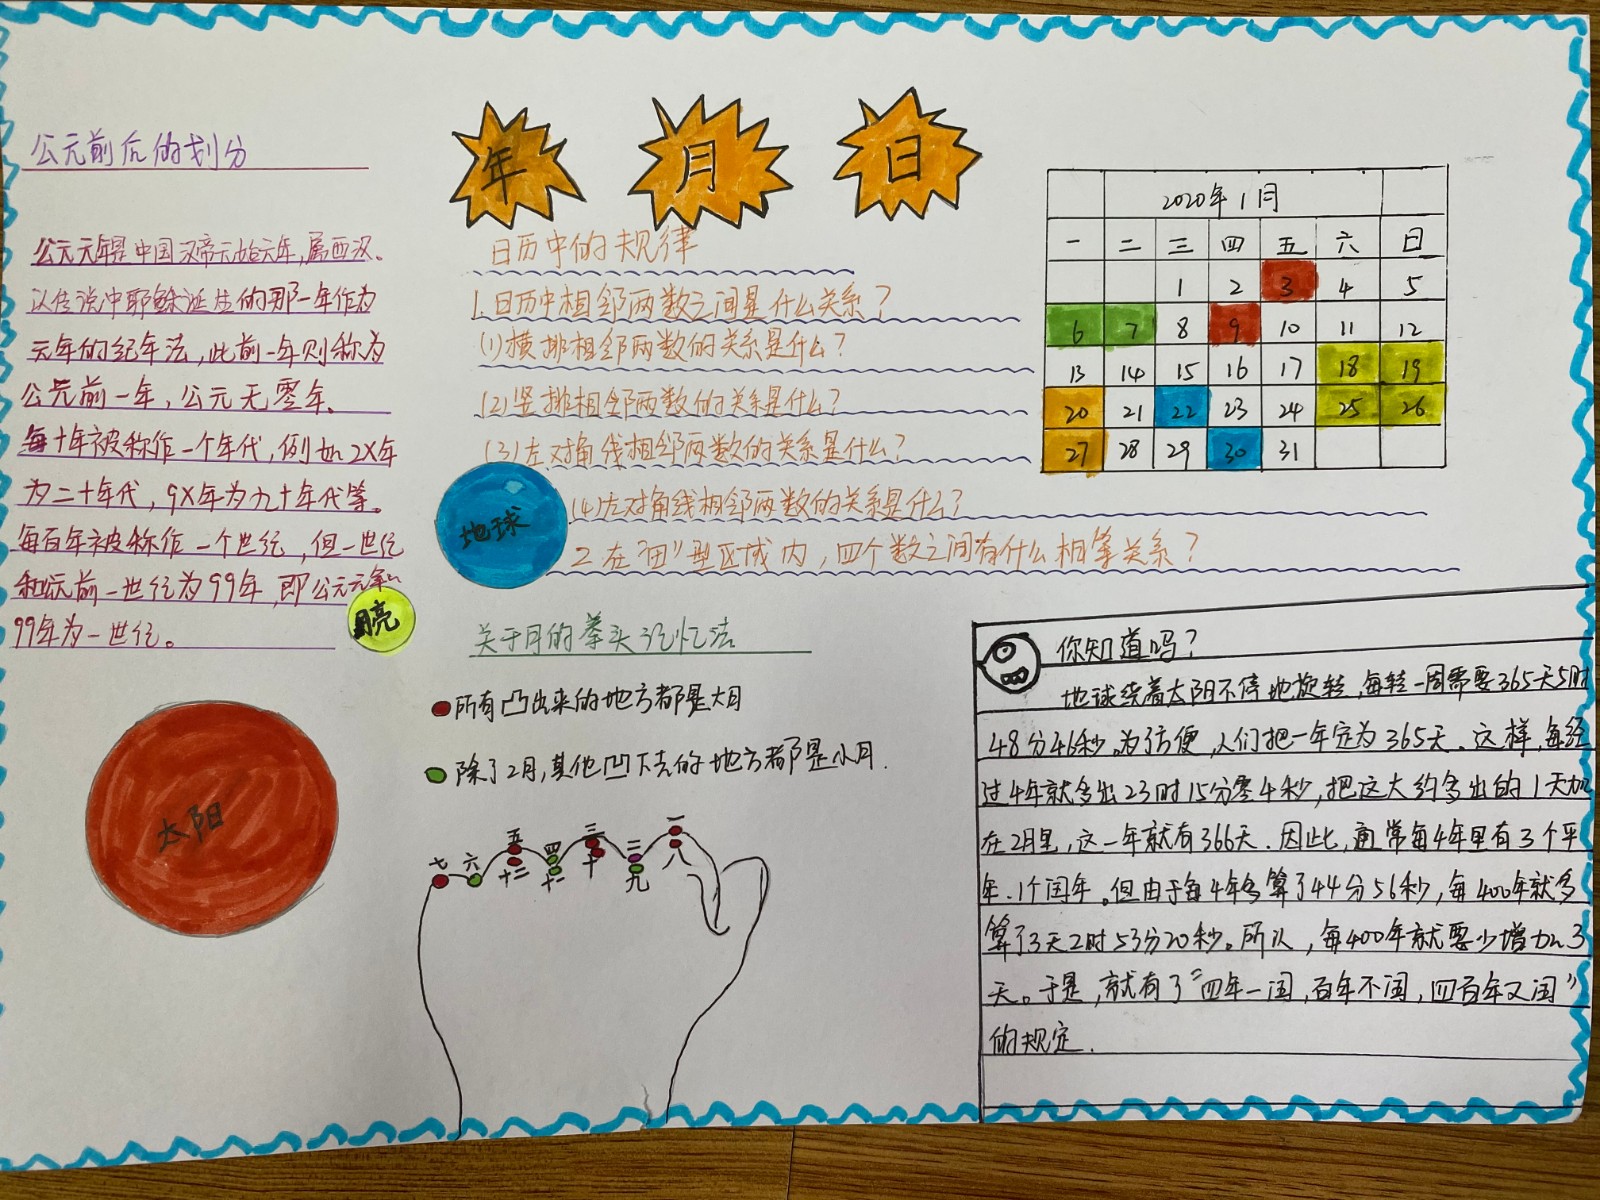 年 月 日
公元前后的划分
公元元年是中国汉帝元始元年,属西汉。
以传说中耶稣诞生的那一年作为
元年的纪年法,此前一年则称为
公元前一年,公元无零年、
每十年被称作一个年代,例如2X年
为二十年代,9X年为九十年代等。
每百年被称作一个世纪,但一世纪
和公元前一世纪为99年,即公元元年~
99年为一世纪。
月亮
太阳
日历中的规律
1.日历中相邻两数之间是什么关系?
(1)横排相邻两数的关系是什么?
(2)竖排相邻两数的关系是什么?
(3)左对角线相邻两数的关系是什么?
(4)左对角线相邻两数的关系是什么?
2.在“田”型区域内,四个数之间有什么相等关系?
地球
2020年1月
一 二 三 四 五 六 日
1 2 3 4 5
6 7 8 9 10 11 12
13 14 15 16 17 18 19
20 21 22 23 24 25 26
27 28 29 30 31
关于月的拳头记忆法
所有凸出来的地方都是大月
除了2月,其他凹下去的地方都是小月.
七 六 五 四 三 二 一
十二 十一 十 九 八
你知道吗?
地球绕着太阳不停地旋转,每转一周需要365天5时
48分46秒。为了方便,人们把一年定为365天.这样,每经
过4年就多出23时15分零4秒,把这大约多出的1天加
在2月里,这一年就有366天.因此,通常每4年里有3个平
年、1个闰年。但由于每4年多算了44分56秒,每400年就多
算了3天2时53分20秒。所以,每400年就要少增加3
天。于是,就有了“四年一闰,百年不闰,四百年又闰”
的规定.